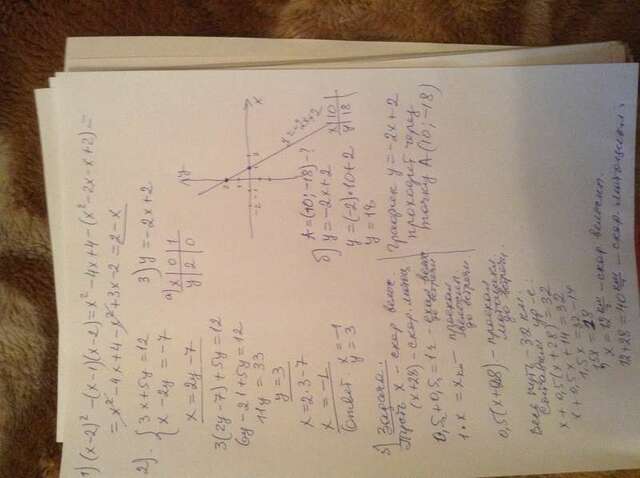 1) (x-2)² -(x-1)(x-2)=x²-4x+4-(x²-2x-x+2)=
= x²-4x+4-x²+3x-2 = 2-x
2). { 3x+5y=12
x-2y=-7
x=2y-7
3(2y-7)+5y=12
6y-21+5y=12
11y=33
y=3
x=2·3-7
x=-1
Ответ. x=-1
y=3
3) y=-2x+2
а) x | 0 | 1
y | 2 | 0
y
x
y=-2x+2
б) A=(10; -18)-?
y=-2x+2
y=(-2)·10+2
y=18
x | 10
y | 18
График y=-2x+2
проходит через
точку A(10; -18)
Задача.
Пусть x - скор велос
(x+28) - скор. мотоц
0,5+0,5=1ч -
до встречи
1·x = x км - проехал
велосип
до встречи
0,5(x+28) - проехал
мотоцикл.
до встречи.
Весь путь - 32 км.
Составим ур-е:
x+0,5(x+28)=32
x+0,5x+14=32
1,5x=32-14
x=12 км/ч - скор велосип.
12+28=40 км/ч - скор мотоцикл.